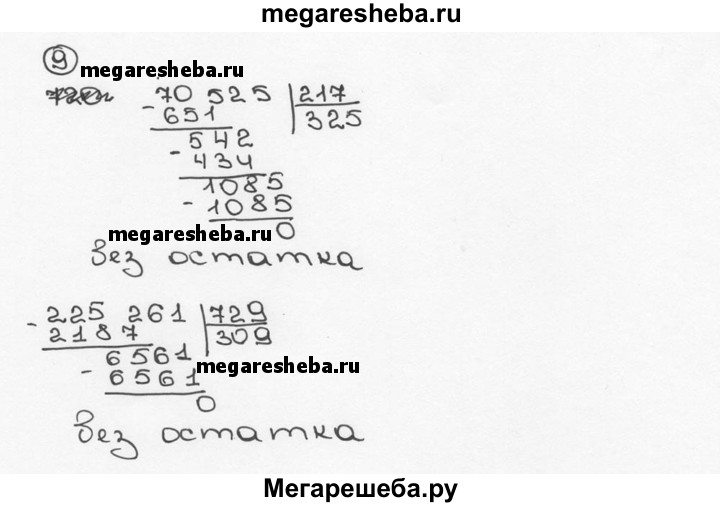 megaresheba.ru
9
megaresheba.ru
70 525 217
- 651 325
542
- 434
1085
- 1085
0
megaresheba.ru
Без остатка
- 225 261 729
2187 309
6561
- 6561
megaresheba.ru
0
Без остатка
Мегарешеба.ру